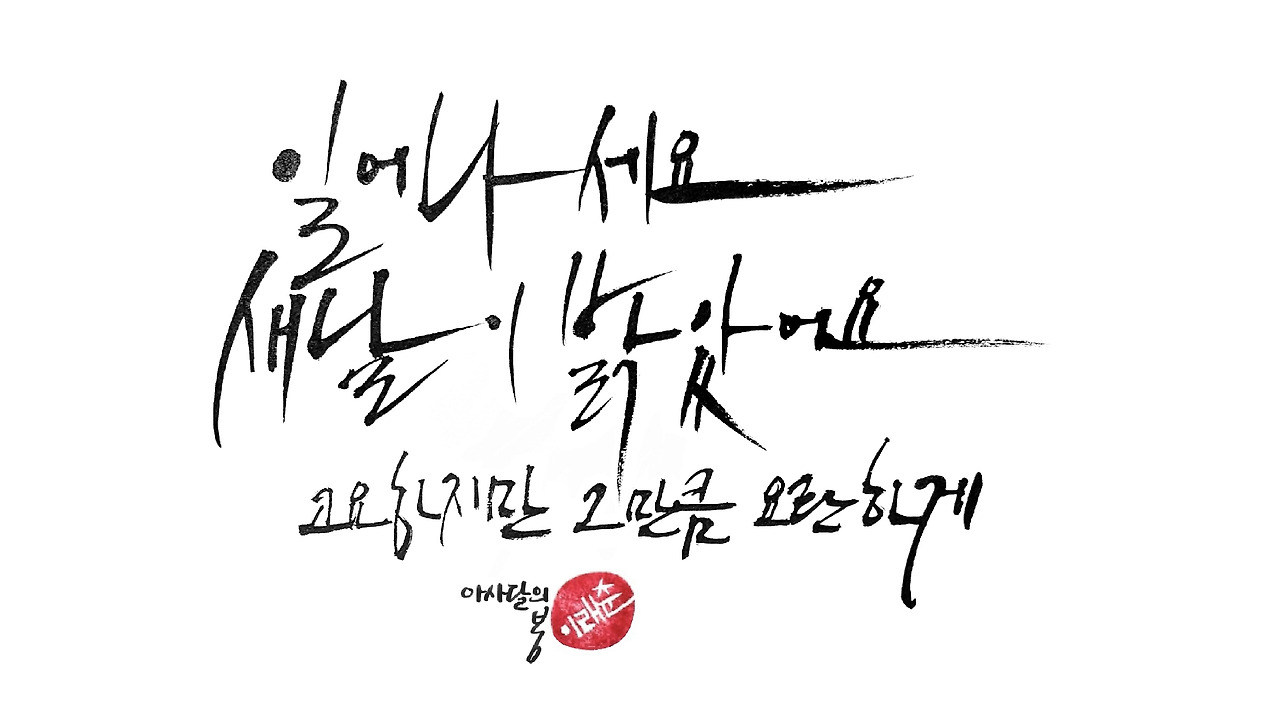 일어나세요
새달이 밝았어요
고요하지만 그만큼 요란하게
아사달의
봄
이래춘